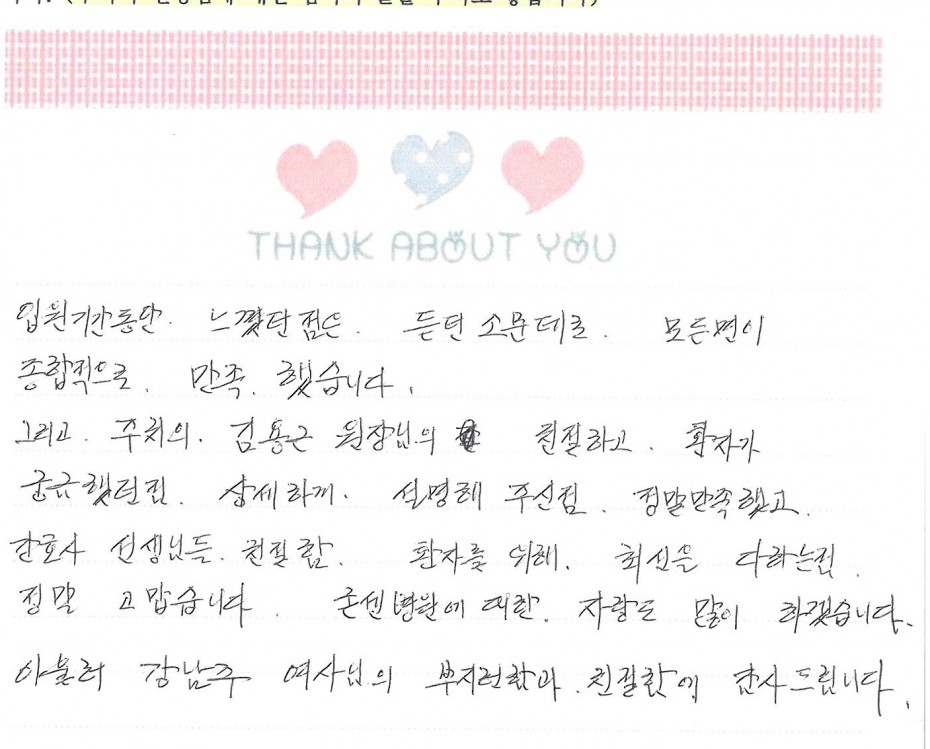 THANK ABOUT YOU
입원기간동안. 느꼈단 점은. 듣던 소문데로. 모든면이
종합적으로. 만족. 했습니다.
그리고. 주치의. 김용근 원장님의 친절하고. 환자가
궁금했던점. 상세하게. 설명해 주신점. 정말만족했고.
간호사 선생님들. 친절함. 환자를 위해. 최선을 다하는점.
정말 고맙습니다. 굳센병원에 대한. 자랑도 많이 하겠습니다.
아울러 강남주 여사님의 부지런함과. 친절함에 감사드립니다.